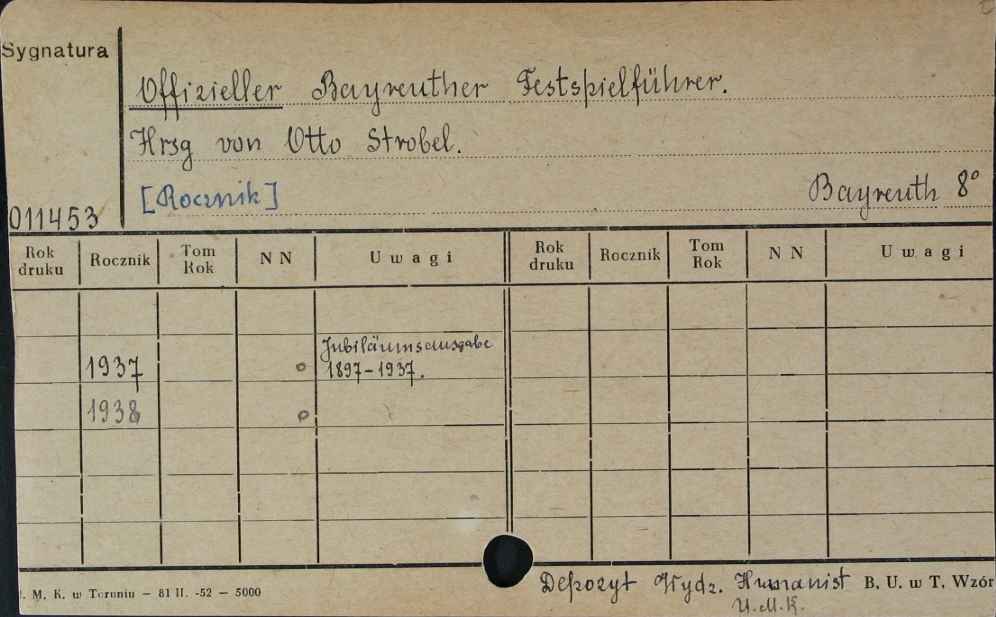 Sygnatura
Offizieller Bayreuther Festspielführer.
Hrsg von Otto Strobel.
[Rocznik] Bayreuth 8°
011453
Rok druku Rocznik Tom Rok NN Uwagi Rok druku Rocznik Tom Rok NN Uwagi
Jubiläumsausgabe
1937 o 1897-1937.
1938 o
Depozyt Wydz. Humanist B. U. w T. Wzór
M. K. w Toruniu — 81 II. -52 — 5000
U.M.K.